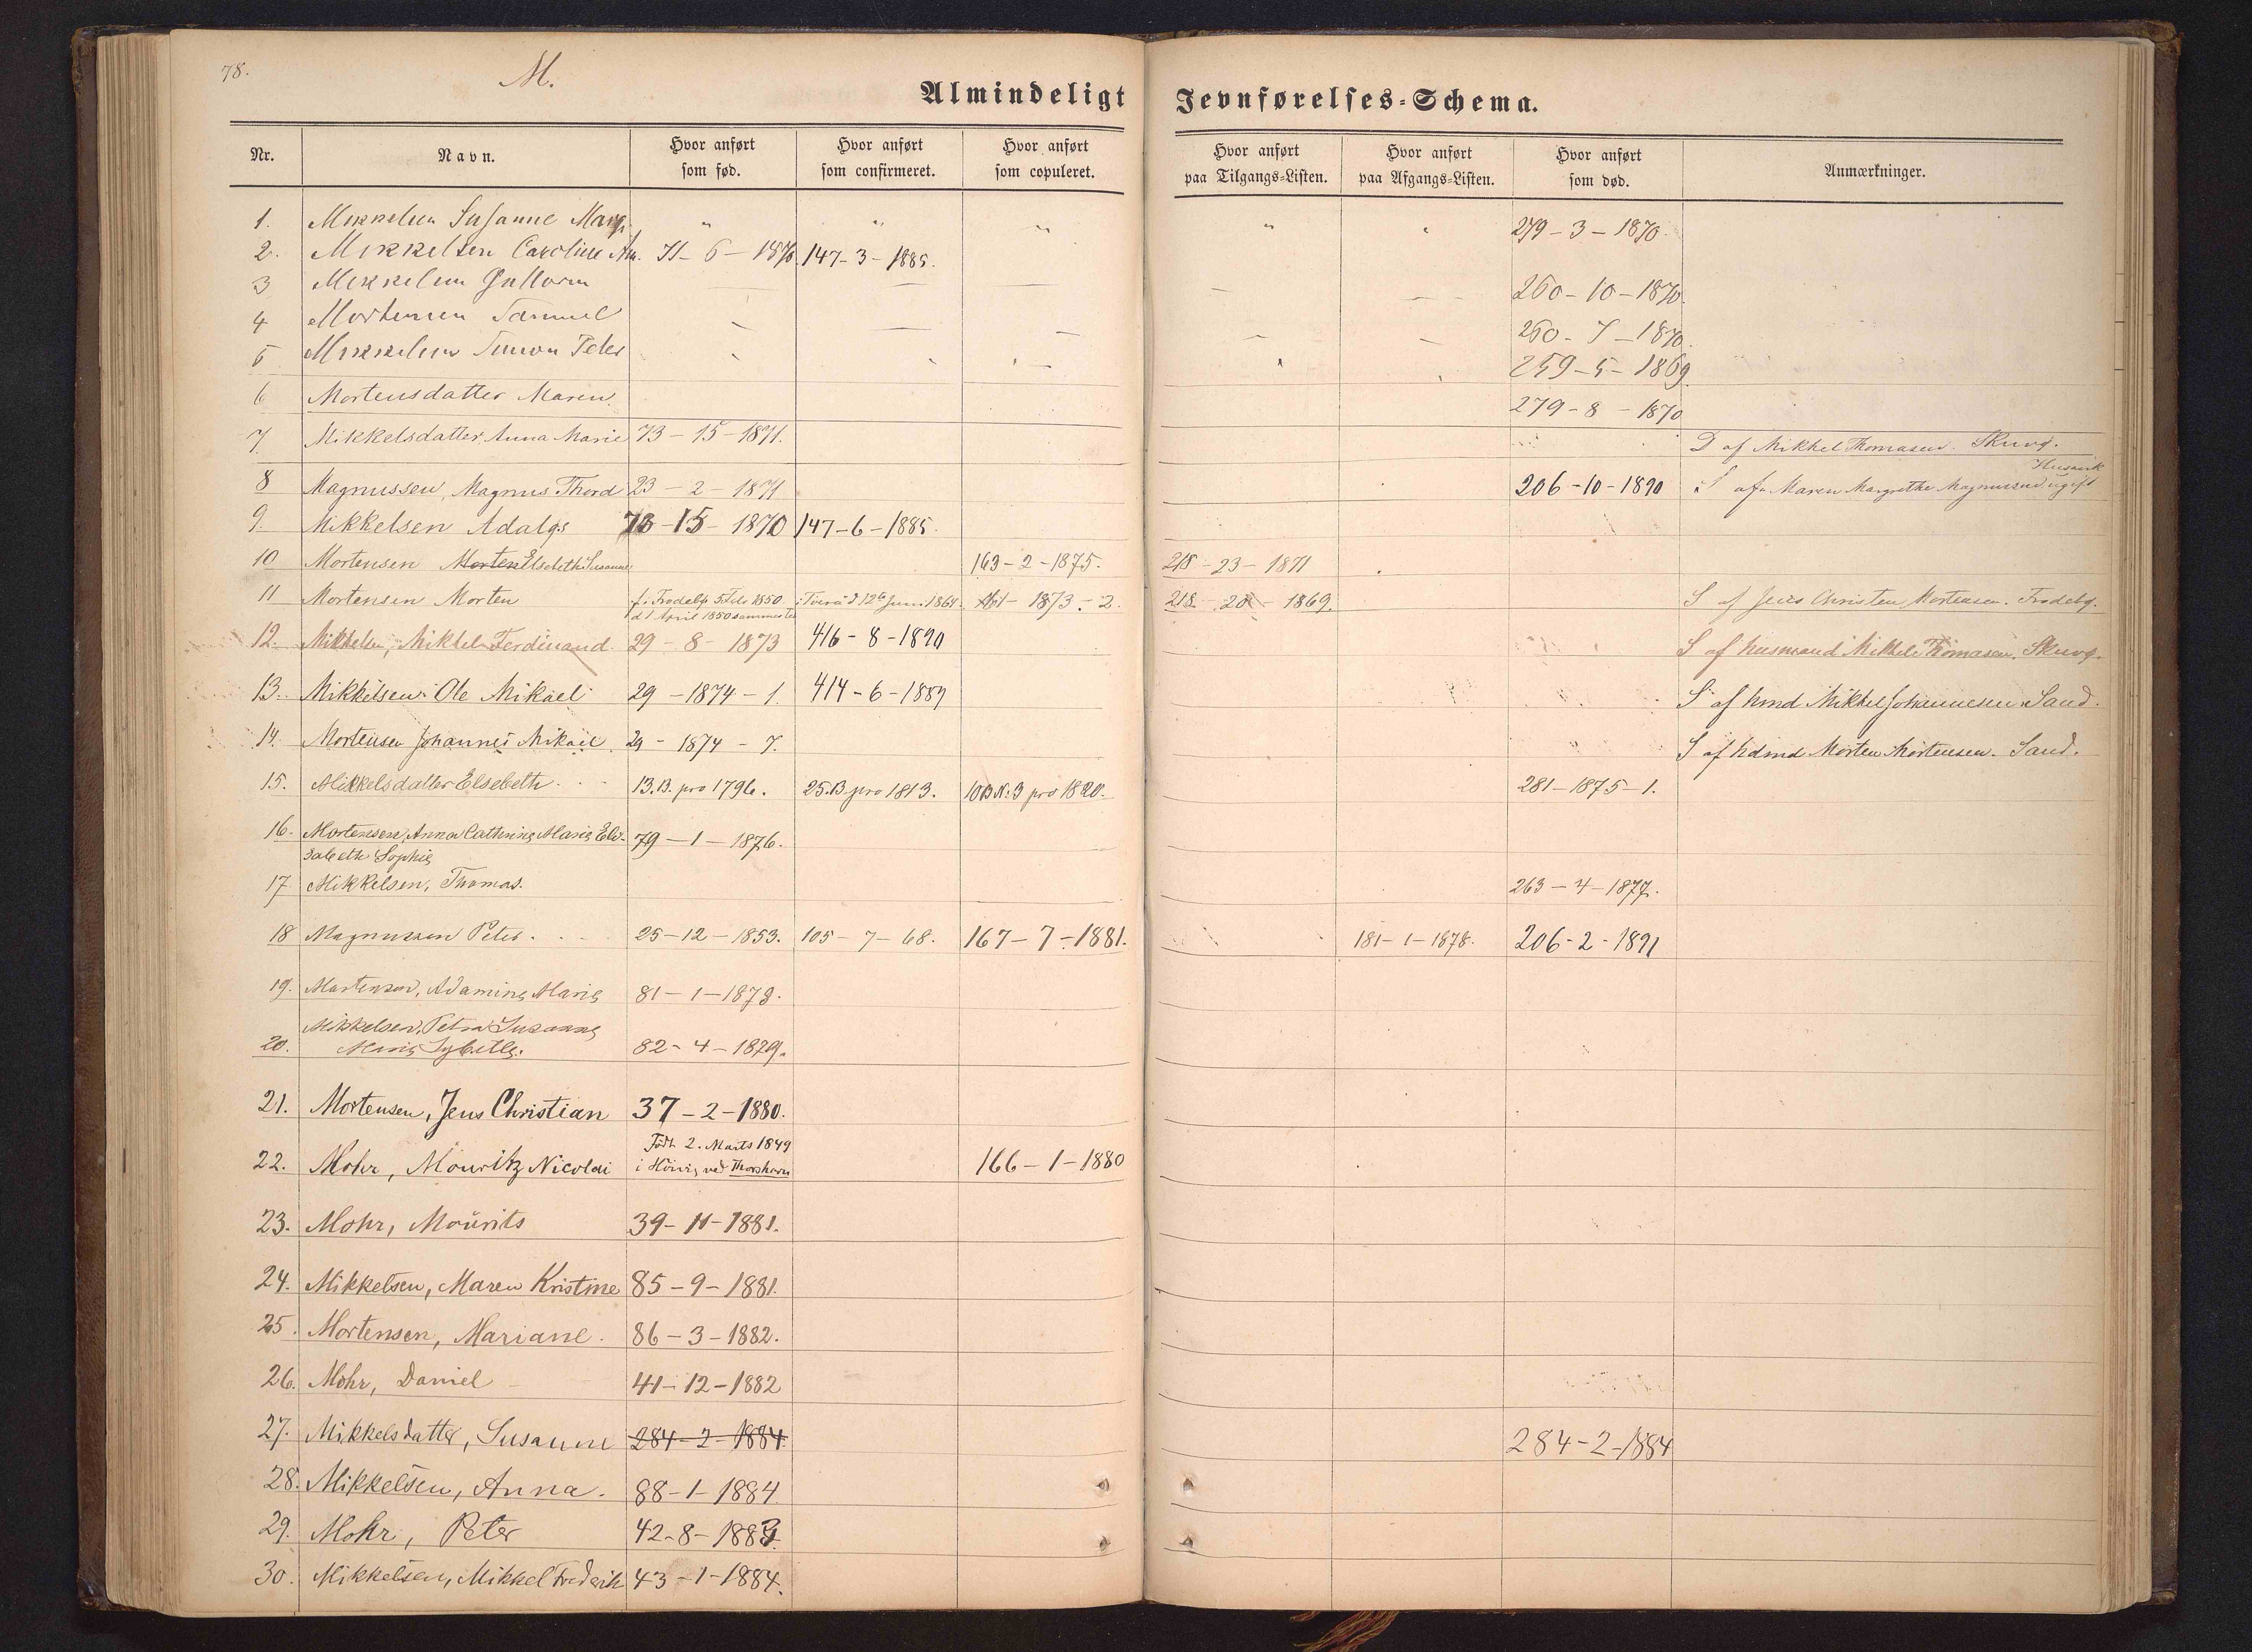 78.
M.
Almindeligt Jevnførelses-Schema.
Nr. Navn. Hvor anført som fød. Hvor anført som confirmeret. Hvor anført som copuleret. Hvor anført paa Tilgangs-Listen. Hvor anført paa Afgangs-Listen. Hvor anført som død. Anmærkninger.
1. Mikkelsen Susanne " " " " " 279-3-1870.
2. Mikkelsen Caroline 147-3-1885.
3 Mikkelsen 260-10-1870.
4 Mortensen Samuel 260-7-1870.
5 Mikkelsen Simon Peter 259-5-1869.
6 Mortensdatter Maren. 279-8-1870
7. Mikkelsdatter, Anna Marie 73-15-1871. D af Mikkel Thomasen. Skuvø.
8 Magnussen, Magnus Thord 23-2-1871 206-10-1890 S af Maren Margrethe Magnussen ugift Husavik
9. Mikkelsen Adalgs 73-15-1870 147-6-1885.
10 Mortensen Morten Elsebeth Susanne 163-2-1875. 218-23-1871
11 Mortensen Morten f. i Frodebø 5 Feb 1850 i Tverå d 12te Juni 1864. 161-1873-2. 218-20-1869. S af Jens Christen Mortensen. Frodebø.
d 1 April 1850 samme
12. Mikkelsen, Mikkel Ferdinand. 29-8-1873 416-8-1890 S af husmand Mikkel Thomasen. Skuvø.
13. Mikkelsen. Ole Mikael 29-1874-1. 414-6-1889 S af hmd Mikkel Johannesen. Sand.
14. Mortensen Johannes Mikael. 29-1874-7. S af hdmd Morten Mortensen. Sand.
15. Mikkelsdatter Elsebeth. 13.B. pro 1796. 25.B. pro 1813. 10B N:3 pro 1820. 281-1875-1.
16. Mortensen, Anna Cathrine Marie Eli- 79-1-1876.
sabeth Sophie
17. Mikkelsen, Thomas. 263-4-1877.
18 Magnussen Peter. 25-12-1853. 105-7-68. 167-7-1881. 181-1-1878. 206-2-1891
19. Mortensen, Adamine Marie 81-1-1878.
Mikkelsen, Petra Susanne
20. Marie 82-4-1879.
21. Mortensen, Jens Christian 37-2-1880.
Født 2. Marts 1849
22. Mohr, Mouritz Nicolai i Hoivig ved Thorshavn 166-1-1880
23. Mohr, Mourits 39-11-1881.
24. Mikkelsen, Maren Kristine 85-9-1881.
25. Mortensen, Mariane. 86-3-1882.
26. Mohr, Daniel 41-12-1882
27. Mikkelsdatter, Susanne 284-2-1884. 284-2-1884
28. Mikkelsen, Anna. 88-1-1884.
29. Mohr, Peter 42-8-1883.
30. Mikkelsen, Mikkel Frederik 43-1-1884.